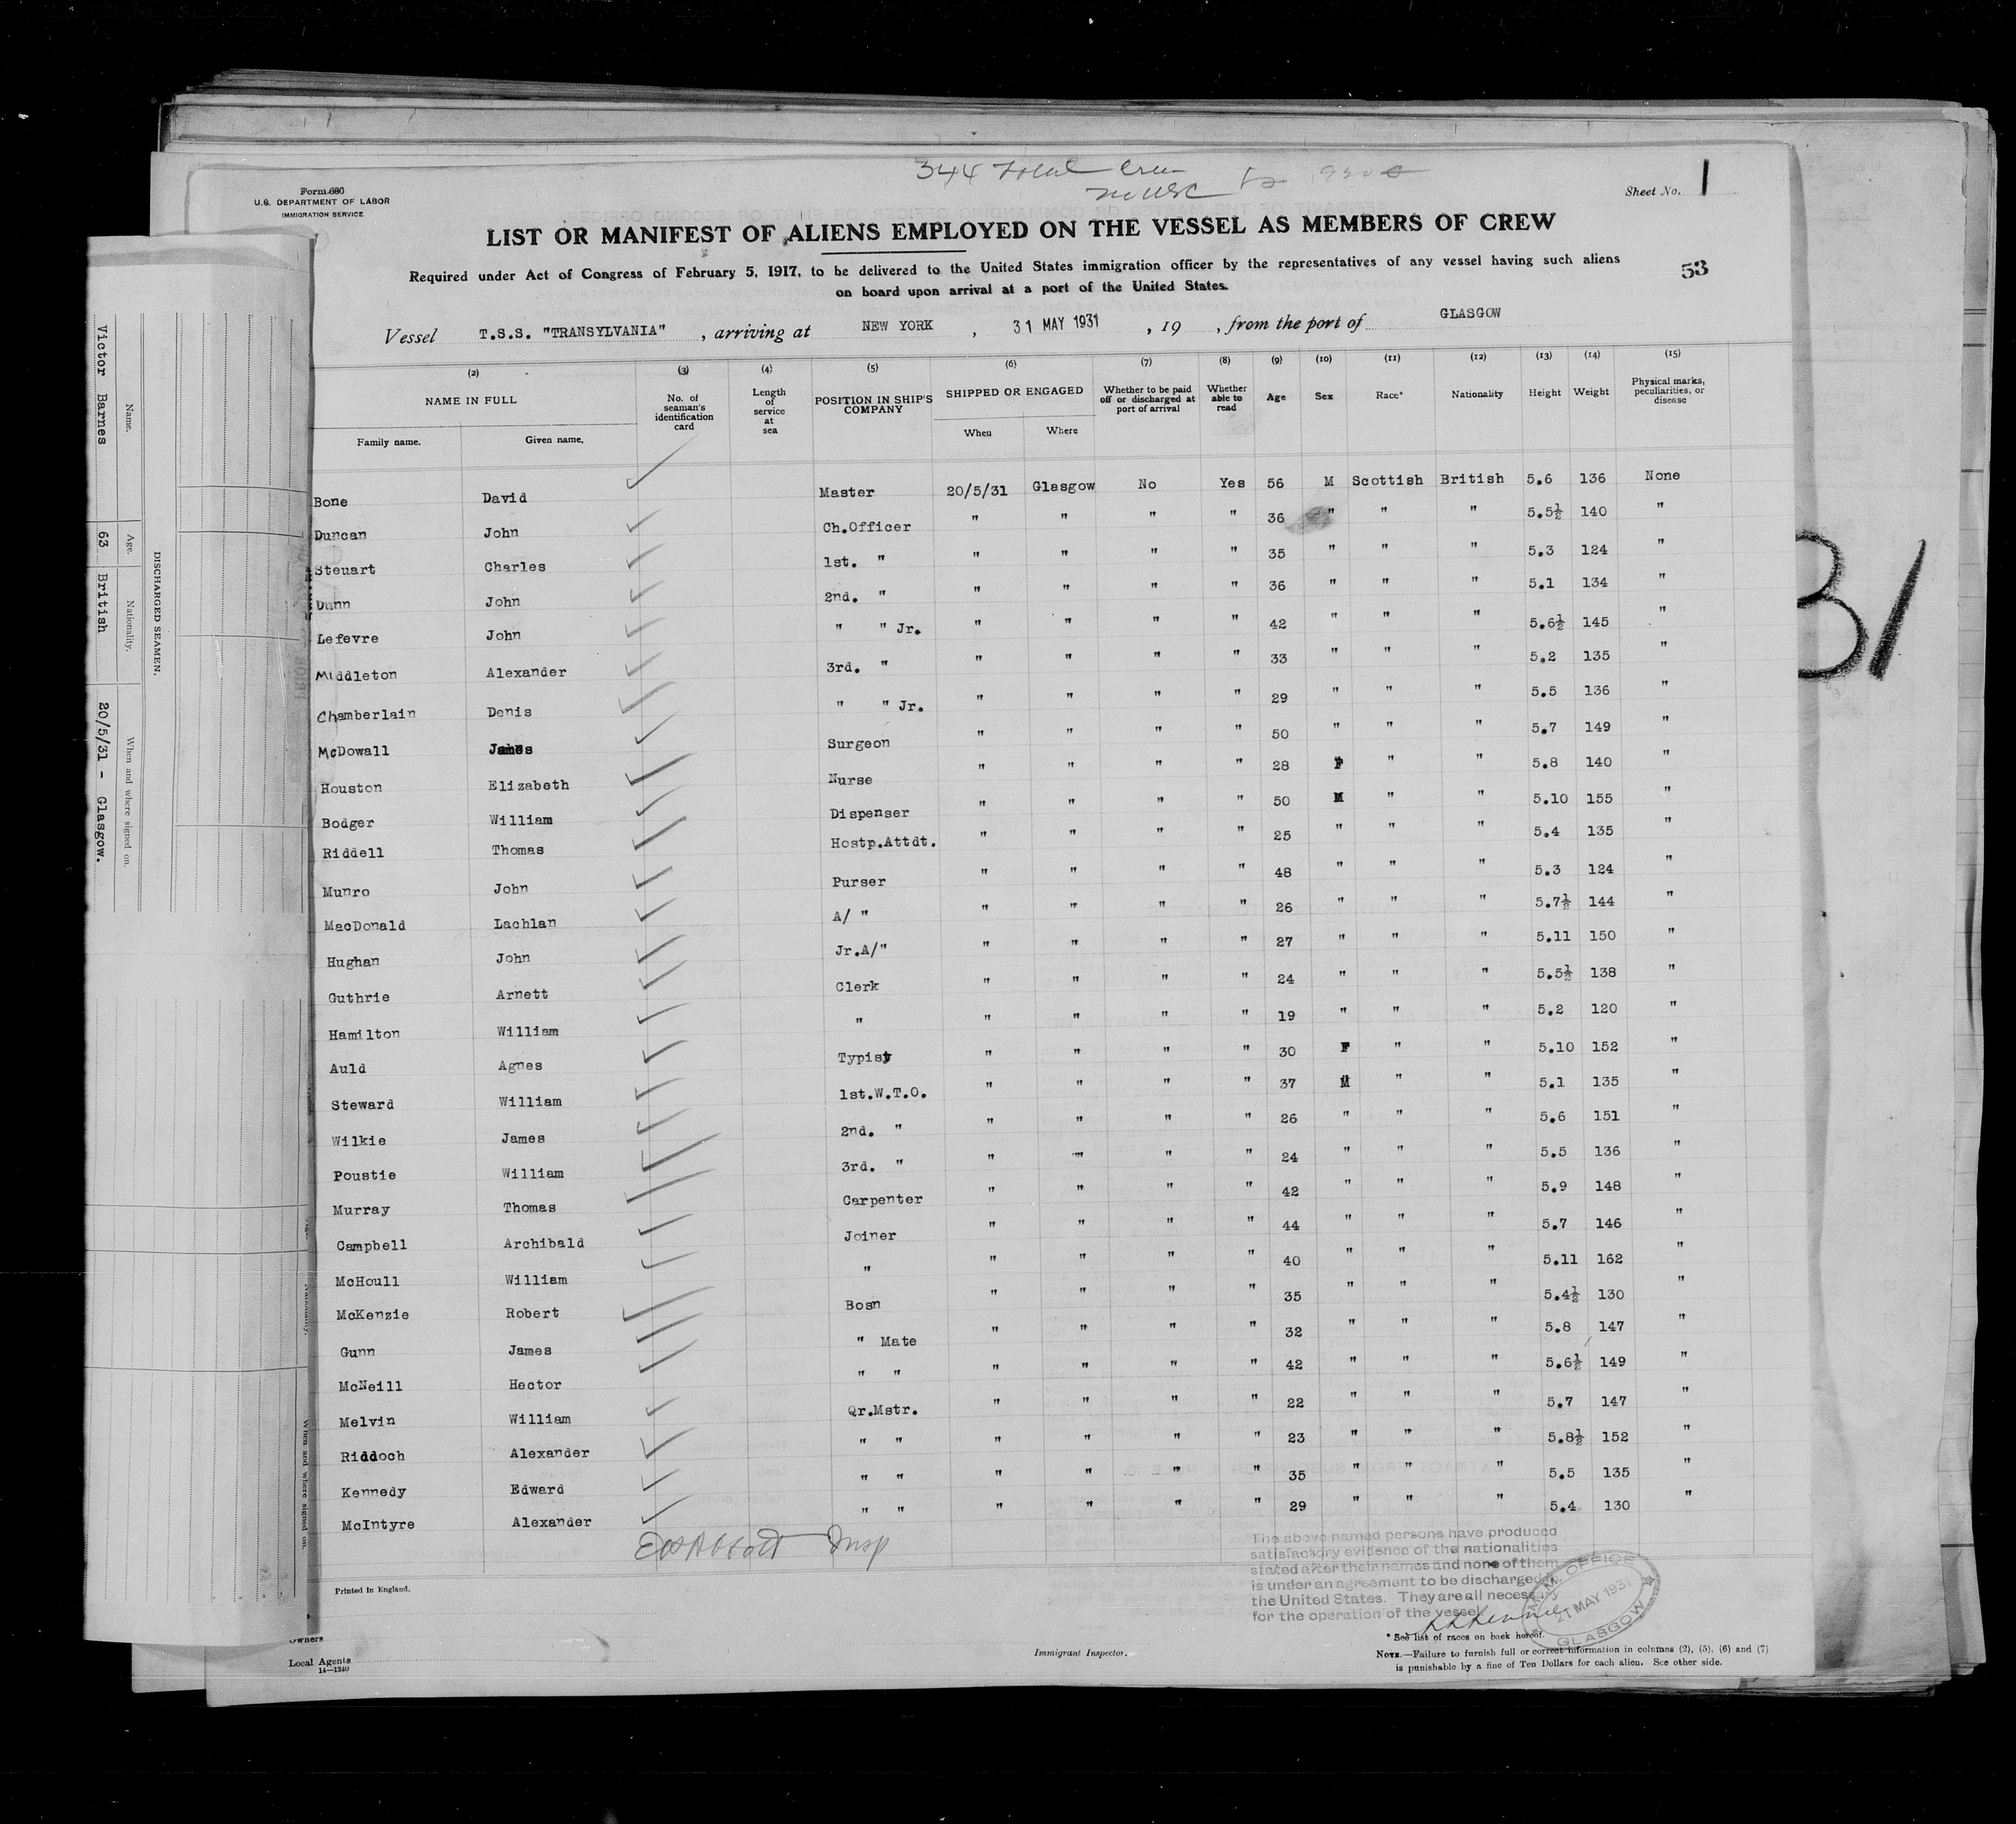 344 Total Crew
Form 680
U.S. DEPARTMENT OF LABOR
IMMIGRATION SERVICE
Sheet No. 1
LIST OR MANIFEST OF ALIENS EMPLOYED ON THE VESSEL AS MEMBERS OF CREW
Required under Act of Congress of February 5, 1917, to be delivered to the United States immigration officer by the representatives of any vessel having such aliens
on board upon arrival at a port of the United States.
53
Vessel T.S.S. "TRANSYLVANIA" , arriving at NEW YORK , 31 MAY 1931 , 19 , from the port of GLASGOW
(2) (3) (4) (5) (6) (7) (8) (9) (10) (11) (12) (13) (14) (15)
NAME IN FULL No. of seaman's identification card Length of service at sea POSITION IN SHIP'S COMPANY SHIPPED OR ENGAGED Whether to be paid off or discharged at port of arrival Whether able to read Age Sex Race* Nationality Height Weight Physical marks, peculiarities, or disease
Family name. Given name. When Where
Bone David Master 20/5/31 Glasgow No Yes 56 M Scottish British 5.6 136 None
Duncan John Ch.Officer " " " " 36 " " " 5.5½ 140 "
Steuart Charles 1st. " " " " " 35 " " " 5.3 124 "
Dunn John 2nd. " " " " " 36 " " " 5.1 134 "
Lefevre John " " Jr. " " " " 42 " " " 5.6½ 145 "
Middleton Alexander 3rd. " " " " " 33 " " " 5.2 135 "
Chamberlain Denis " " Jr. " " " " 29 " " " 5.5 136 "
McDowall James Surgeon " " " " 50 " " " 5.7 149 "
Houston Elizabeth Nurse " " " " 28 F " " 5.8 140 "
Bodger William Dispenser " " " " 50 M " " 5.10 155 "
Riddell Thomas Hostp.Attdt. " " " " 25 " " " 5.4 135 "
Munro John Purser " " " " 48 " " " 5.3 124 "
MacDonald Lachlan A/ " " " " " 26 " " " 5.7½ 144 "
Hughan John Jr.A/" " " " " 27 " " " 5.11 150 "
Guthrie Arnett Clerk " " " " 24 " " " 5.5½ 138 "
Hamilton William " " " " " 19 " " " 5.2 120 "
Auld Agnes Typist " " " " 30 F " " 5.10 152 "
Steward William 1st.W.T.O. " " " " 37 M " " 5.1 135 "
Wilkie James 2nd. " " " " " 26 " " " 5.6 151 "
Poustie William 3rd. " " " " " 24 " " " 5.5 136 "
Murray Thomas Carpenter " " " " 42 " " " 5.9 148 "
Campbell Archibald Joiner " " " " 44 " " " 5.7 146 "
McHoull William " " " " " 40 " " " 5.11 162 "
McKenzie Robert Bosn " " " " 35 " " " 5.4½ 130 "
Gunn James " Mate " " " " 32 " " " 5.8 147 "
McNeill Hector " " " " " " 42 " " " 5.6½ 149 "
Melvin William Qr.Mstr. " " " " 22 " " " 5.7 147 "
Riddoch Alexander " " " " " " 23 " " " 5.8½ 152 "
Kennedy Edward " " " " " " 35 " " " 5.5 135 "
McIntyre Alexander " " " " " " 29 " " " 5.4 130 "
Insp
The above named persons have produced
satisfactory evidence of the nationalities
stated after their names and none of them
is under an agreement to be discharged
the United States. They are all necess
for the operation of the vessel
M.M. OFFICE
21 MAY 1931
GLASGOW
Printed in England.
Owners
Local Agents
14—1240
Immigrant Inspector.
* See list of races on back hereof.
NOTE.—Failure to furnish full or correct information in columns (2), (5), (6) and (7)
is punishable by a fine of Ten Dollars for each alien. See other side.
DISCHARGED SEAMEN.
Name. Age. Nationality. When and where signed on.
Victor Barnes 63 British 20/5/31 - Glasgow.
Nationality. When and where signed on.
31